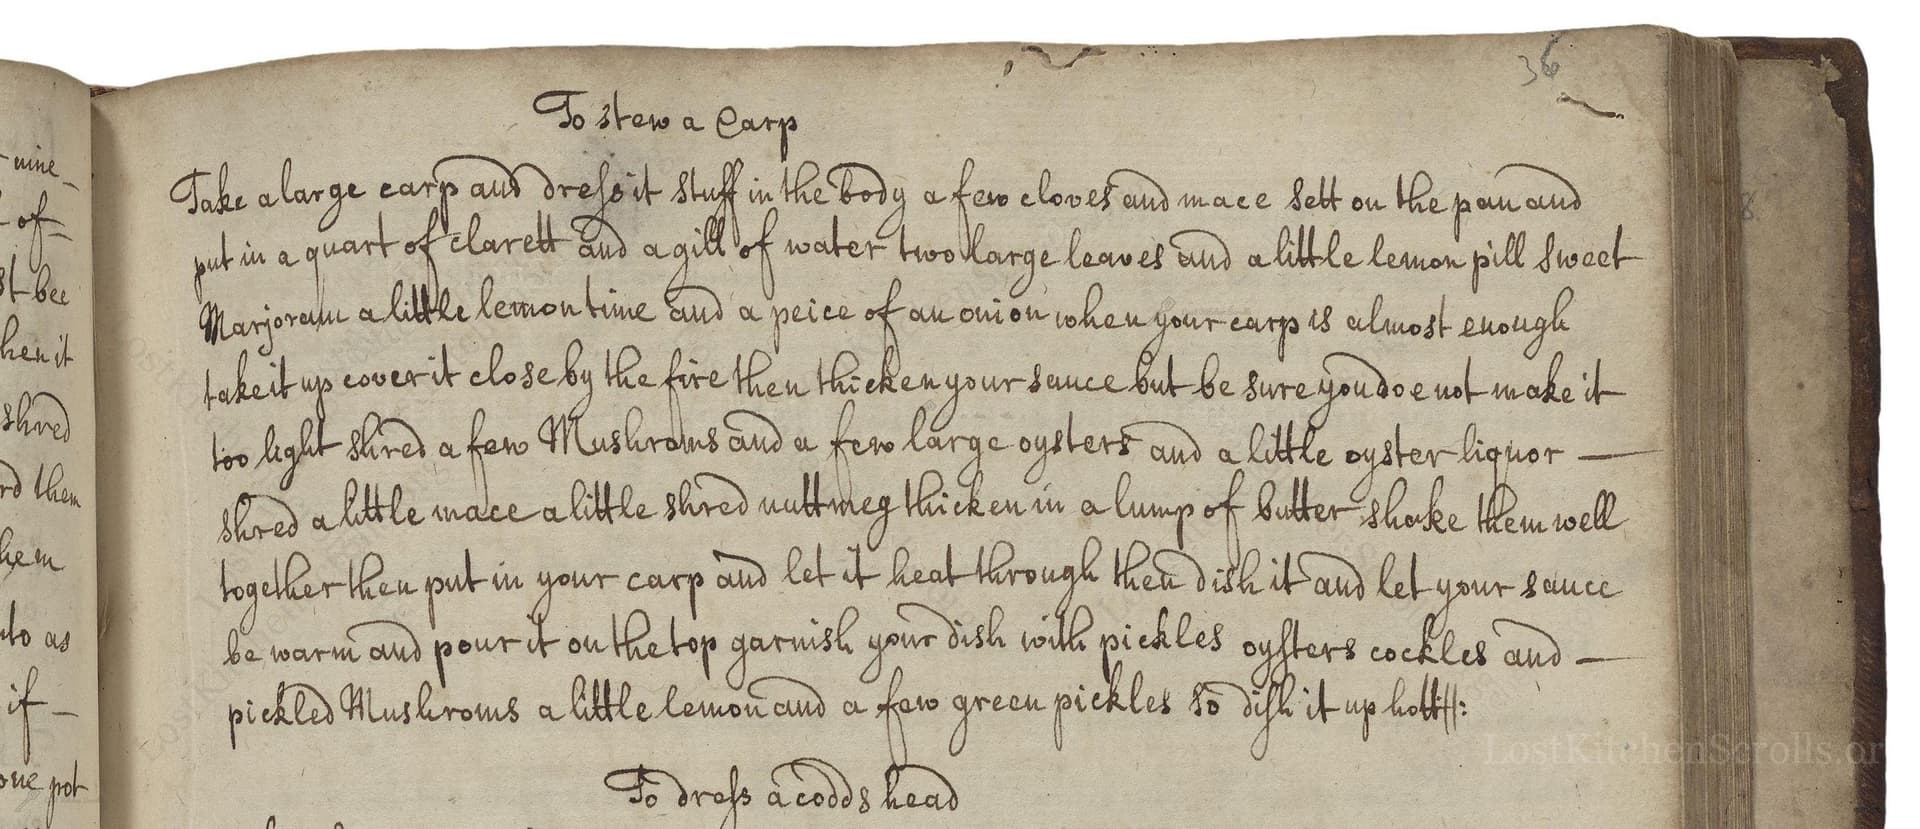 36
To stew a Carp
Take a large carp and dress it stuff in the body a few cloves and mace sett on the pan and
put in a quart of clarett and a gill of water two large leaves and a little lemon pill sweet
Marjoram a little lemon time and a peice of an onion when your carp is almost enough
take it up cover it close by the fire then thicken your sauce but be sure you doe not make it
too light shred a few Mushroms and a few large oysters and a little oyster liquor —
shred a little mace a little shred nuttmeg thicken in a lump of butter shake them well
together then put in your carp and let it heat through then dish it and let your sauce
be warm and pour it on the top garnish your dish with pickles oysters cockles and —
pickled Mushroms a little lemon and a few green pickles so dish it up hott:
To dress a codds head
nine
of
st bee
hen it
shred
rd them
hem
nto as
if
one pot
8
LostKitchenScrolls.or